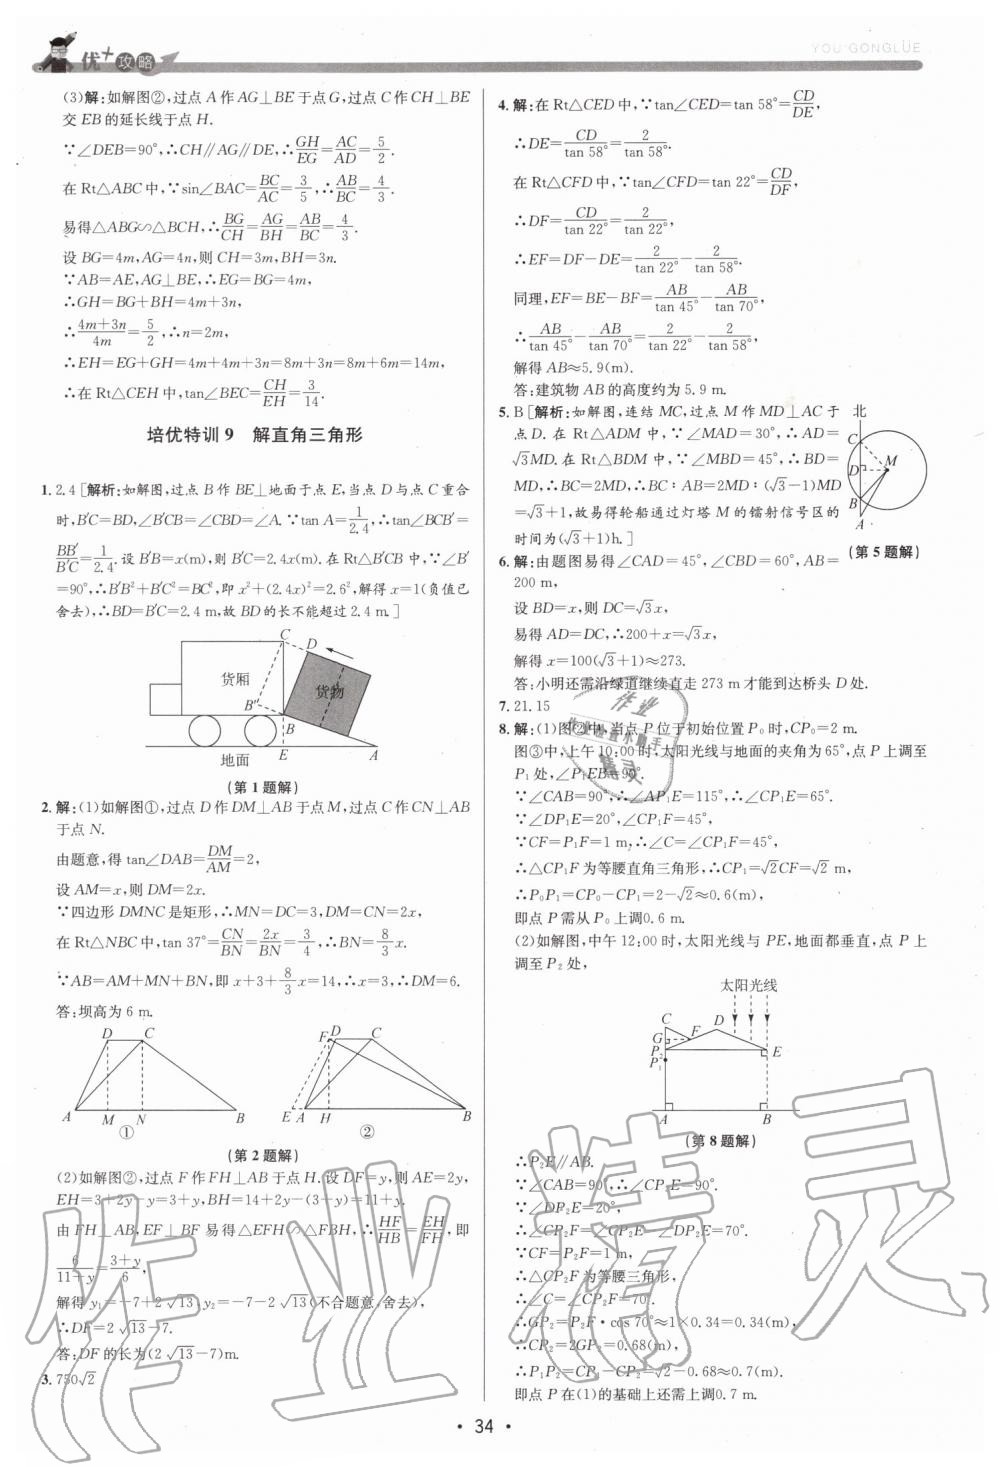 优+攻略
YOU GONGLÜE
(3)解:如解图②,过点 A 作 AG⊥BE 于点 G,过点 C 作 CH⊥BE
交 EB 的延长线于点 H.
∵∠DEB=90°,∴CH∥AG∥DE,∴GH/EG=AC/AD=5/2.
在 Rt△ABC 中,∵sin∠BAC=BC/AC=3/5,∴AB/BC=4/3.
易得△ABG∽△BCH,∴BG/CH=AG/BH=AB/BC=4/3.
设 BG=4m,AG=4n,则 CH=3m,BH=3n.
∵AB=AE,AG⊥BE,∴EG=BG=4m,
∴GH=BG+BH=4m+3n,
∴(4m+3n)/4m=5/2,∴n=2m,
∴EH=EG+GH=4m+4m+3n=8m+3n=8m+6m=14m,
∴在 Rt△CEH 中,tan∠BEC=CH/EH=3/14.
培优特训 9 解直角三角形
1. 2.4 [解析:如解图,过点 B 作 BE⊥地面于点 E,当点 D 与点 C 重合
时,B′C=BD,∠B′CB=∠CBD=∠A.∵tan A=1/2.4,∴tan∠BCB′=
BB′/B′C=1/2.4.设 B′B=x(m),则 B′C=2.4x(m).在 Rt△B′CB 中,∵∠B′
=90°,∴B′B²+B′C²=BC²,即 x²+(2.4x)²=2.6²,解得 x=1(负值已
舍去),∴BD=B′C=2.4 m,故 BD 的长不能超过 2.4 m.]
C
D
货厢
货物
B′
B
E
A
地面
(第 1 题解)
2. 解:(1)如解图①,过点 D 作 DM⊥AB 于点 M,过点 C 作 CN⊥AB
于点 N.
由题意,得 tan∠DAB=DM/AM=2,
设 AM=x,则 DM=2x.
∵四边形 DMNC 是矩形,∴MN=DC=3,DM=CN=2x,
在 Rt△NBC 中,tan 37°=CN/BN=2x/BN=3/4,∴BN=8/3x.
∵AB=AM+MN+BN,即 x+3+8/3x=14,∴x=3,∴DM=6.
答:坝高为 6 m.
D C
A M N B
①
F D C
E A H B
②
(第 2 题解)
(2)如解图②,过点 F 作 FH⊥AB 于点 H.设 DF=y,则 AE=2y,
EH=3+2y-y=3+y,BH=14+2y-(3+y)=11+y.
由 FH⊥AB,EF⊥BF 易得△EFH∽△FBH,∴HF/HB=EH/FH,即
6/(11+y)=(3+y)/6,
解得 y₁=-7+2√13,y₂=-7-2√13(不合题意,舍去),
∴DF=2√13-7.
答:DF 的长为(2√13-7)m.
3. 750√2
4. 解:在 Rt△CED 中,∵tan∠CED=tan 58°=CD/DE,
∴DE=CD/tan 58°=2/tan 58°.
在 Rt△CFD 中,∵tan∠CFD=tan 22°=CD/DF,
∴DF=CD/tan 22°=2/tan 22°,
∴EF=DF-DE=2/tan 22°-2/tan 58°.
同理,EF=BE-BF=AB/tan 45°-AB/tan 70°,
∴AB/tan 45°-AB/tan 70°=2/tan 22°-2/tan 58°,
解得 AB≈5.9(m).
答:建筑物 AB 的高度约为 5.9 m.
5. B [解析:如解图,连结 MC,过点 M 作 MD⊥AC 于
点 D.在 Rt△ADM 中,∵∠MAD=30°,∴AD=
√3MD.在 Rt△BDM 中,∵∠MBD=45°,∴BD=
MD,∴BC=2MD,∴BC∶AB=2MD∶(√3-1)MD
=√3+1,故易得轮船通过灯塔 M 的镭射信号区的
时间为(√3+1)h.]
北
C
D
M
B
A
(第 5 题解)
6. 解:由题图易得∠CAD=45°,∠CBD=60°,AB=
200 m,
设 BD=x,则 DC=√3x,
易得 AD=DC,∴200+x=√3x,
解得 x=100(√3+1)≈273.
答:小明还需沿绿道继续直走 273 m 才能到达桥头 D 处.
7. 21.15
8. 解:(1)图②中,当点 P 位于初始位置 P₀ 时,CP₀=2 m.
图③中,上午 10:00 时,太阳光线与地面的夹角为 65°,点 P 上调至
P₁ 处,∠P₁EB=90°.
∵∠CAB=90°,∴∠AP₁E=115°,∴∠CP₁E=65°.
∵∠DP₁E=20°,∠CP₁F=45°,
∵CF=P₁F=1 m,∴∠C=∠CP₁F=45°,
∴△CP₁F 为等腰直角三角形,∴CP₁=√2CF=√2 m,
∴P₀P₁=CP₀-CP₁=2-√2≈0.6(m),
即点 P 需从 P₀ 上调 0.6 m.
(2)如解图,中午 12:00 时,太阳光线与 PE,地面都垂直,点 P 上
调至 P₂ 处,
太阳光线
C
G F D
P₂ E
P₁
A B
(第 8 题解)
∴P₂E∥AB.
∵∠CAB=90°,∴∠CP₂E=90°.
∵∠DP₂E=20°,
∴∠CP₂F=∠CP₂E-∠DP₂E=70°.
∵CF=P₂F=1 m,
∴△CP₂F 为等腰三角形,
∴∠C=∠CP₂F=70°.
∴GP₂=P₂F·cos 70°≈1×0.34=0.34(m),
∴CP₂=2GP₂=0.68(m),
∴P₁P₂=CP₁-CP₂=√2-0.68≈0.7(m).
即点 P 在(1)的基础上还需上调 0.7 m.
• 34 •
作业精灵